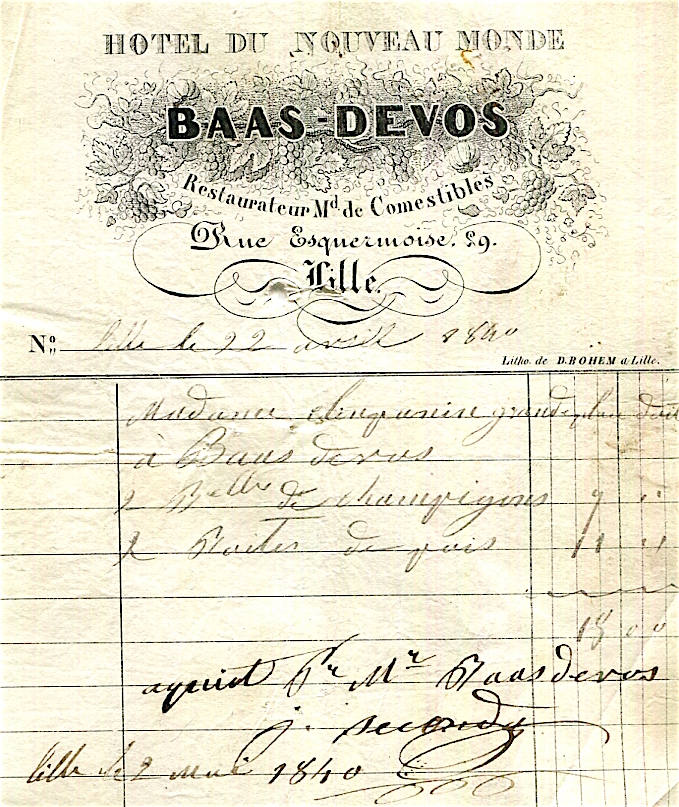 HOTEL DU NOUVEAU MONDE
BAAS-DEVOS
Restaurateur Md de Comestibles
Rue Esquermoise. 29.
Lille.
No lille le 22 avril 1840
Litho. de D. BOHEM a Lille.
Madame grande place doit
à Baas devos
2 Belle de champigons 7 "
2 Boites de pois 11 "
18 00
aquit Pr Mr Baasdevos
j. secondy
lille le 2 Mai 1840